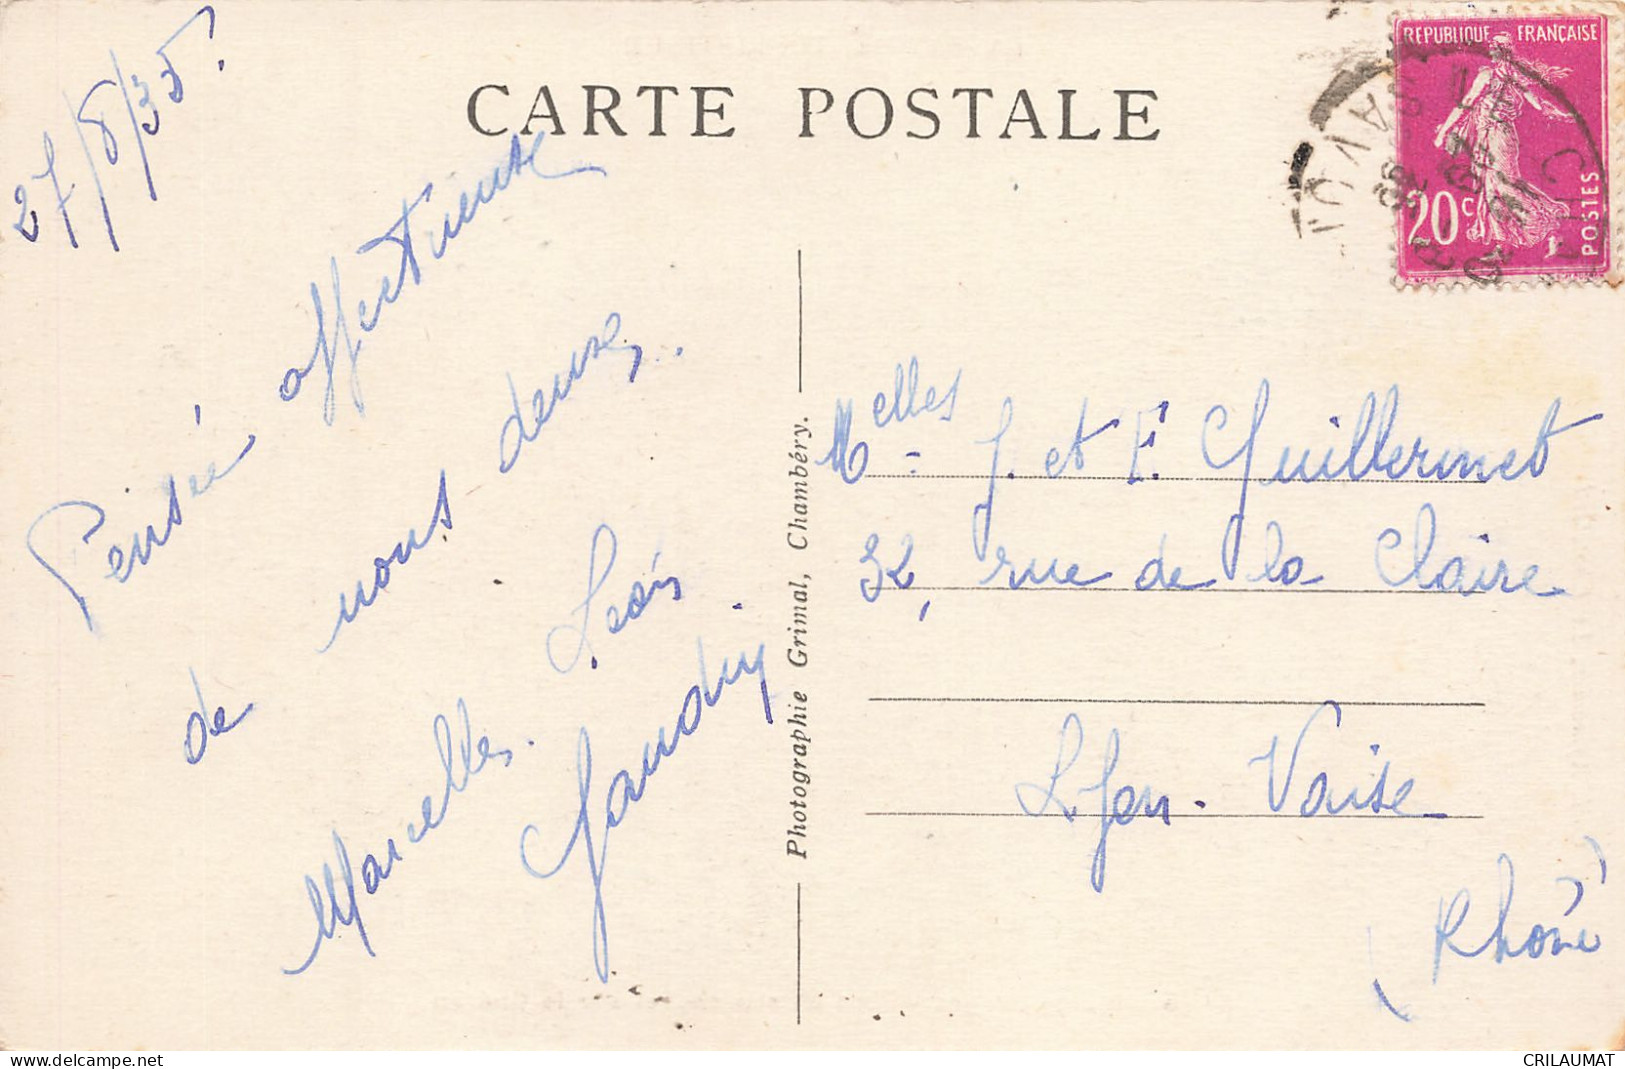 CARTE POSTALE
27/8/35.
Pensée affectueuse
de nous deux.
Marcelles.
Gaudry
Photographie Grimal, Chambéry.
REPUBLIQUE FRANÇAISE
20 c
POSTES
SAVOIE
Melles J. et E. Guillermet
32, rue de la Claire
Lyon-Vaise
(Rhône)
http://www.delcampe.net
CRILAUMAT